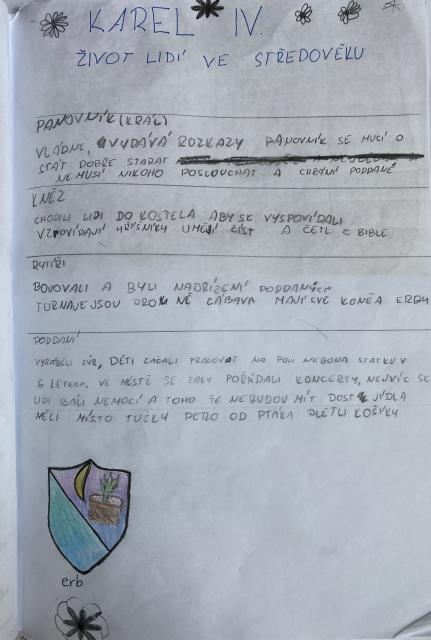 KAREL IV.
ŽIVOT LIDÍ VE STŘEDOVĚKU
PANOVNÍK (KRÁL)
VLÁDNE, VYDÁVÁ ROZKAZY PANOVNÍK SE MUSÍ O
STÁT DOBŘE STARAT
NEMUSÍ NIKOHO POSLOUCHAT A CHRÁNÍ PODDANÉ
KNĚZ
CHODILI LIDI DO KOSTELA ABY SE VYSPOVÍDALI
HŘÍŠNÍKY UMĚJÍ ČÍST A ČETL Z BIBLE
RYTÍŘI
BOJOVALI A BYLI NADŘÍZENÍ PODDANÝCH
TURNAJE JSOU NĚ ZÁBAVA MAJÍ SVÉ KONĚ A ERBY
PODDANÍ
VYRÁBĚLI SÝR, DĚTI ZAČALI PRACOVAT NA POLI NEBO NA STATKU V
6 LETECH. VE MĚSTĚ SE TAKY POŘÁDALI KONCERTY, NEJVÍC SE
LIDI BÁLI NEMOCÍ A TOHO ŽE NEBUDOU MÍT DOST JÍDLA
MĚLI MÍSTO TUŽKY PERO OD PTÁKA PLETLI KOŠÍKY
erb